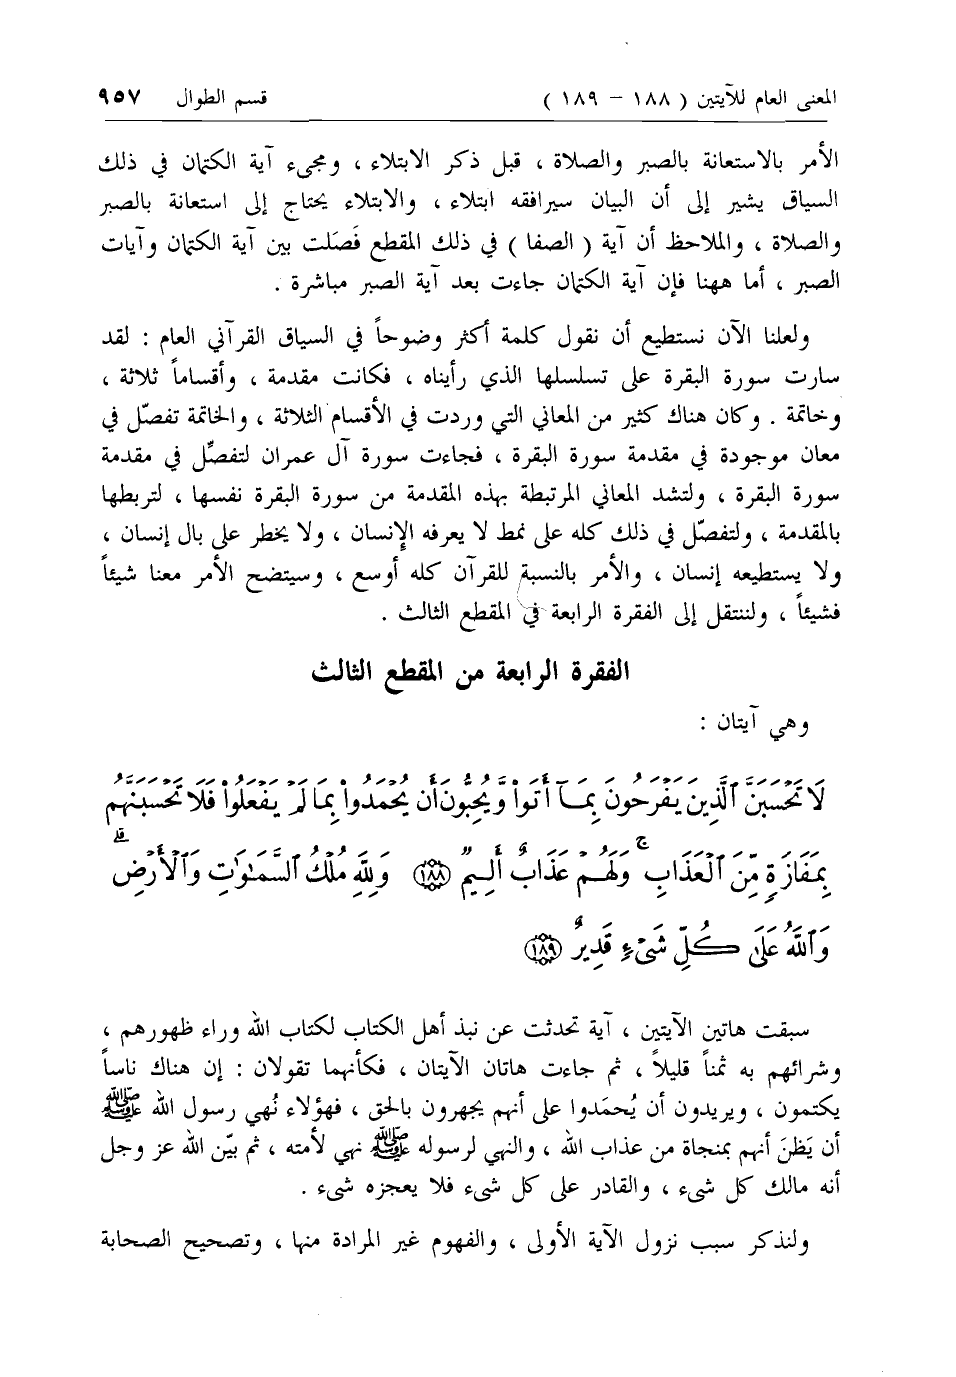 المعنى العام للآيتين ( ١٨٨ – ١٨٩ ) قسم الطوال ٩٥٧
الأمر بالاستعانة بالصبر والصلاة ، قبل ذكر الابتلاء ، ومجيء آية الكتمان في ذلك
السياق يشير إلى أن البيان سيرافقه ابتلاء ، والابتلاء يحتاج إلى استعانة بالصبر
والصلاة ، والملاحظ أن آية ( الصفا ) في ذلك المقطع فَصَلت بين آية الكتمان وآيات
الصبر ، أما ههنا فإن آية الكتمان جاءت بعد آية الصبر مباشرة .
ولعلنا الآن نستطيع أن نقول كلمة أكثر وضوحاً في السياق القرآني العام : لقد
سارت سورة البقرة على تسلسلها الذي رأيناه ، فكانت مقدمة ، وأقساماً ثلاثة ،
وخاتمة . وكان هناك كثير من المعاني التي وردت في الأقسام الثلاثة ، والخاتمة تفصّل في
معان موجودة في مقدمة سورة البقرة ، فجاءت سورة آل عمران لتفصِّل في مقدمة
سورة البقرة ، ولتشد المعاني المرتبطة بهذه المقدمة من سورة البقرة نفسها ، لتربطها
بالمقدمة ، ولتفصّل في ذلك كله على نمط لا يعرفه الإنسان ، ولا يخطر على بال إنسان ،
ولا يستطيعه إنسان ، والأمر بالنسبة للقرآن كله أوسع ، وسيتضح الأمر معنا شيئاً
فشيئاً ، ولننتقل إلى الفقرة الرابعة في المقطع الثالث .
الفقرة الرابعة من المقطع الثالث
وهي آيتان :
لَا تَحْسَبَنَّ ٱلَّذِينَ يَفْرَحُونَ بِمَآ أَتَوا۟ وَّيُحِبُّونَ أَن يُحْمَدُوا۟ بِمَا لَمْ يَفْعَلُوا۟ فَلَا تَحْسَبَنَّهُم
بِمَفَازَةٍ مِّنَ ٱلْعَذَابِ ۚ وَلَهُمْ عَذَابٌ أَلِيمٌ ١٨٨ وَلِلَّهِ مُلْكُ ٱلسَّمَٰوَٰتِ وَٱلْأَرْضِ ۗ
وَٱللَّهُ عَلَىٰ كُلِّ شَىْءٍ قَدِيرٌ ١٨٩
سبقت هاتين الآيتين ، آية تحدثت عن نبذ أهل الكتاب لكتاب الله وراء ظهورهم ،
وشرائهم به ثمناً قليلاً ، ثم جاءت هاتان الآيتان ، فكأنهما تقولان : إن هناك ناساً
يكتمون ، ويريدون أن يُحمَدوا على أنهم يجهرون بالحق ، فهؤلاء نُهي رسول الله ﷺ
أن يَظنَ أنهم بمنجاة من عذاب الله ، والنهي لرسوله ﷺ نهي لأمته ، ثم بيّن الله عز وجل
أنه مالك كل شيء ، والقادر على كل شيء فلا يعجزه شيء .
ولنذكر سبب نزول الآية الأولى ، والفهوم غير المرادة منها ، وتصحيح الصحابة